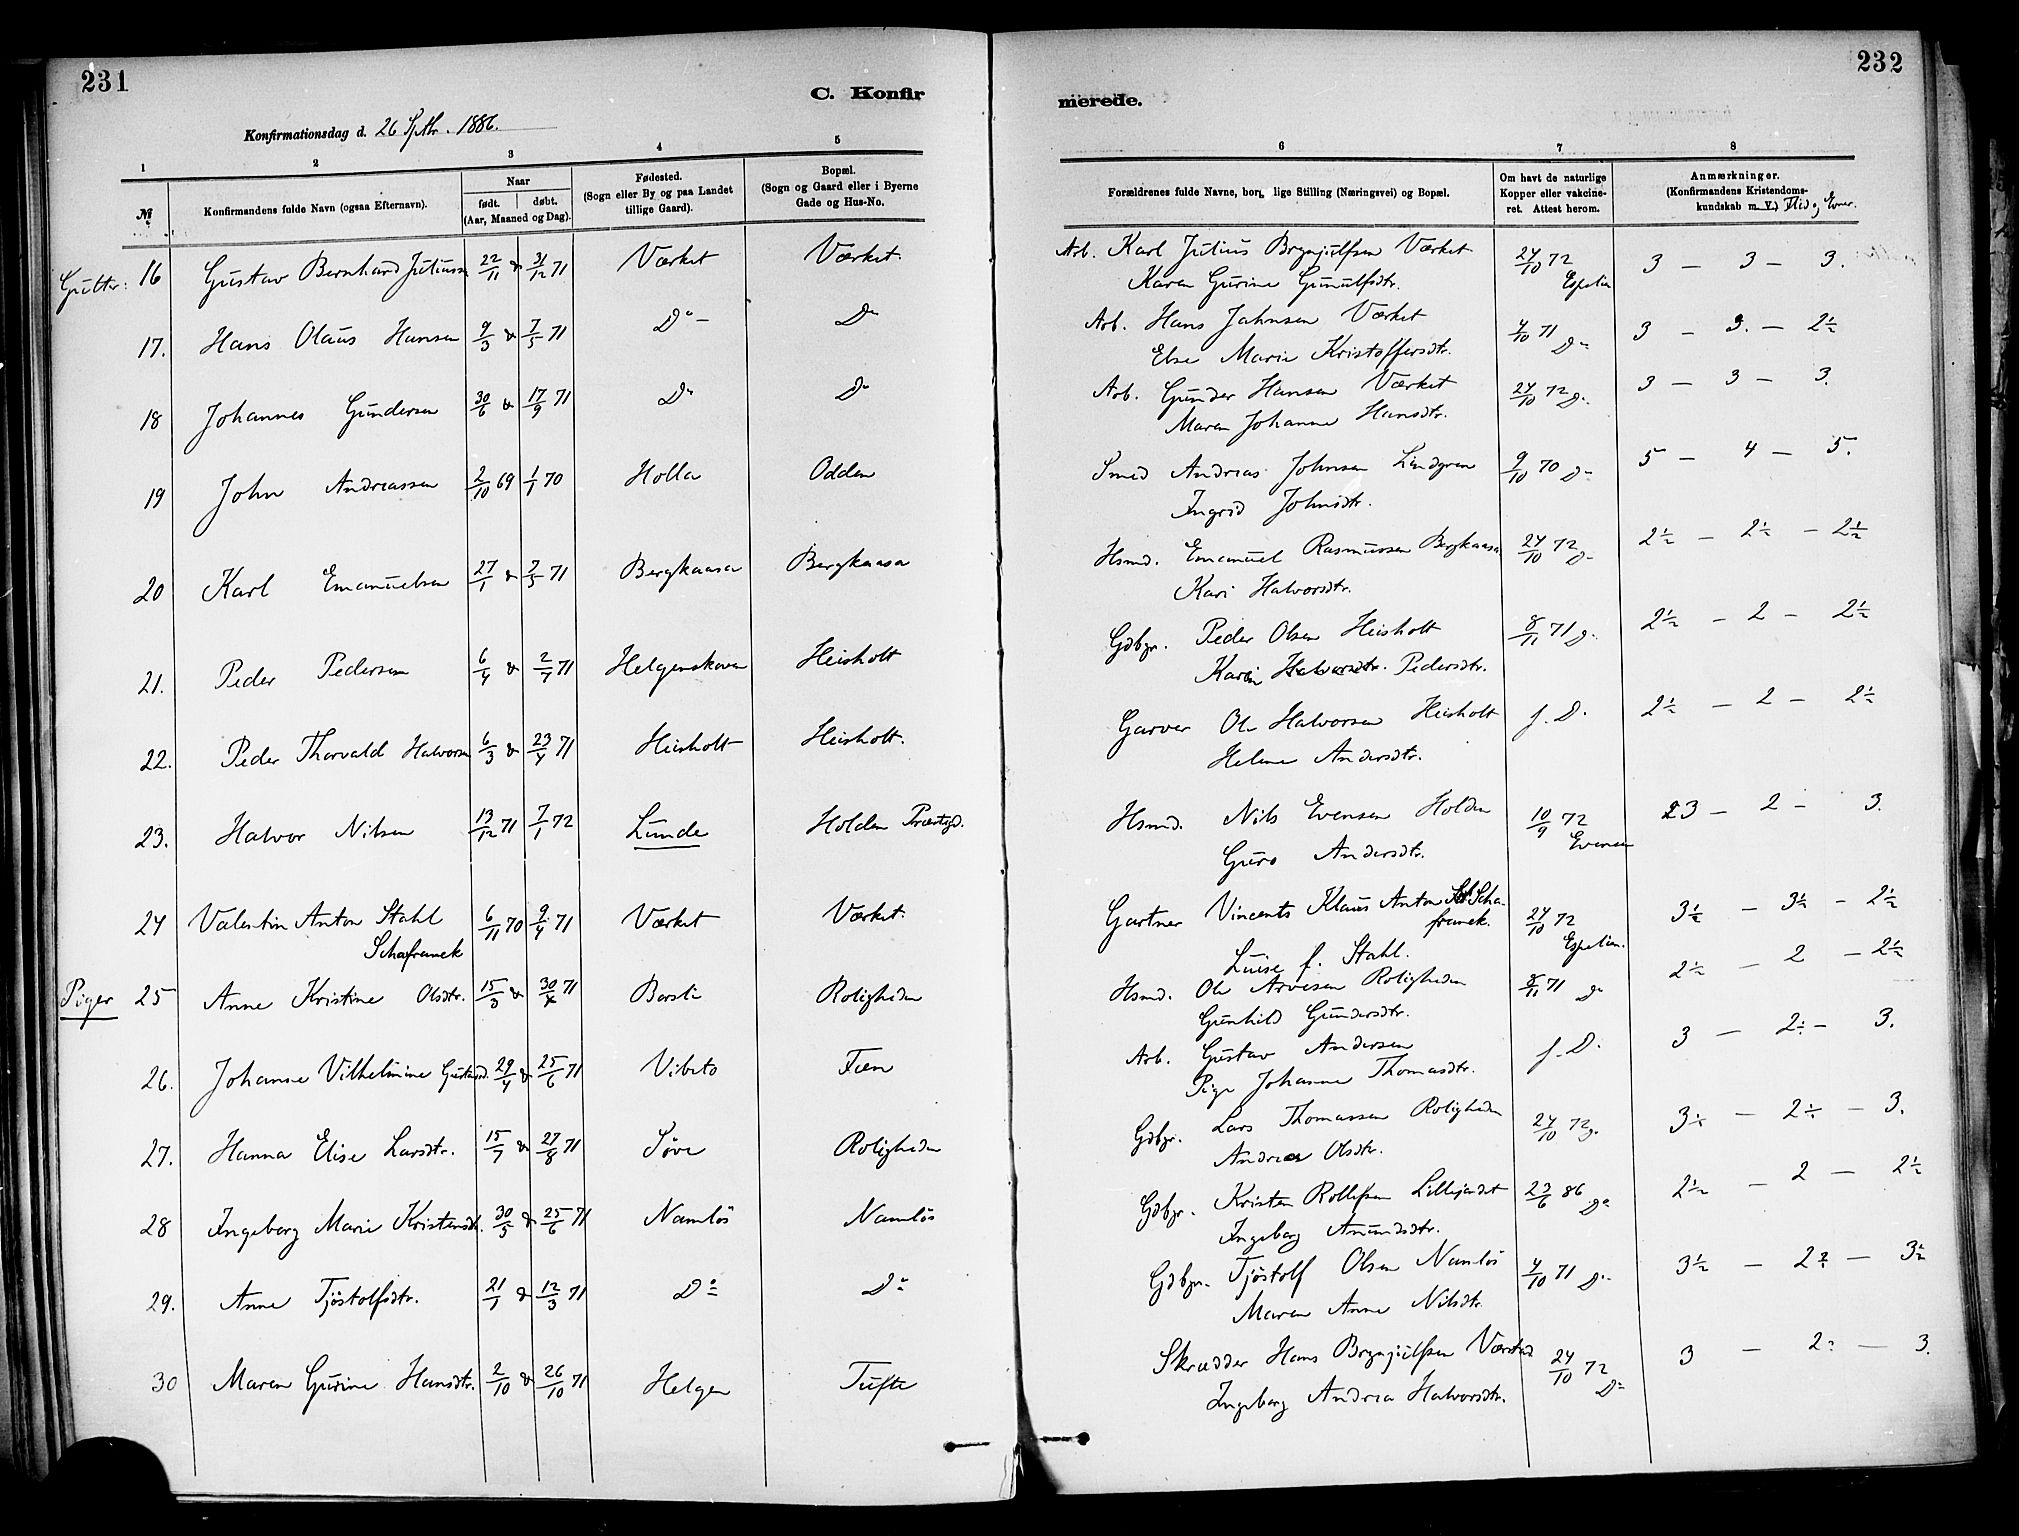 231
232
C. Konfir
merede.
Konfirmationsdag d. 26 Septbr. 1886.
1 2 3 4 5 6 7 8
№
Konfirmandens fulde Navn (ogsaa Efternavn).
Naar
født. døbt.
(Aar, Maaned og Dag).
Fødested.
(Sogn eller By og paa Landet
tillige Gaard).
Bopæl.
(Sogn og Gaard eller i Byerne
Gade og Hus-No.
Forældrenes fulde Navne, borgerlige Stilling (Næringsvei) og Bopæl.
Om havt de naturlige
Kopper eller vakcine-
ret. Attest herom.
Anmærkninger.
(Konfirmandens Kristendoms-
kundskab m. V.) Flid og Evner.
Gutter: 16 Gustav Bernhard Juliussen 22/11 & 31/12 71 Værket Værket. Arb. Karl Julius Brynjulfsen Værket 24/10 72 3 — 3 — 3.
Karen Gurine Gunulfsdtr. Espelien
17. Hans Olaus Hansen 9/3 & 7/5 71 Do — Do Arb. Hans Jahnsen Værket 4/10 71 Do 3 — 3. — 2½
Else Marie Kristoffersdtr.
18 Johannes Gundersen 30/6 & 17/9 71 Do Do Arb. Gunder Hansen Værket 24/10 72 Do 3 — 3 — 3.
Maren Johanne Hansdtr.
19 John Andreassen 2/10 69 1/1 70 Holla Odden Smed Andreas Johnsen Lindgren 9/10 70 Do 5 — 4 — 5.
Ingrid Johnsdtr.
20 Karl Emanuelsen 27/1 & 7/5 71 Bergkaasa Bergkaasa Hsmd. Emanuel Rasmussen Bergkaasa 24/10 72 Do 2½ — 2½ — 2½
Kari Halvorsdtr.
21. Peder Pedersen 6/4 & 2/7 71 Helgenskaven Heisholt Gdbgr. Peder Olsen Heisholt 8/11 71 Do 2½ — 2 — 2½
Karin Halvorsdtr. Pedersdtr.
22. Peder Thorvald Halvorsen 6/3 & 23/4 71 Heisholt Heisholt. Garver Ole Halvorsen Heisholt f. D. 2½ — 2 — 2½
Helene Andersdtr.
23. Halvor Nilsen 13/12 71 7/1 72 Lunde Holden Præstgd. Hsmd. Nils Evensen Holden 10/9 72 3 — 2 — 3.
Guro Andersdtr. Evensen
24 Valentin Anton Stahl 6/11 70 9/4 71 Værket Værket. Gartner Vincents Klaus Anton Scha- 24/10 72 3½ — 3½ — 2½
Schafranek franek. Espelien.
Luise f. Stahl.
Piger 25 Anne Kristine Olsdtr. 15/3 & 30/4 71 Borsti Roligheden Hsmd. Ole Arvesen Roligheden 8/11 71 Do 2½ — 2 — 2½
Gunhild Gundersdtr.
26. Johanne Vilhelmine Gustavsd. 29/4 & 25/6 71 Vibeto Fæn Arb. Gustav Andersen f. D. 3 — 2½ — 3.
Pige Johanne Thomasdtr.
27. Hanna Elise Larsdtr. 15/7 & 27/8 71 Søve Roligheden Gdbgr. Lars Thomassen Roligheden 24/10 72 Do 3½ — 2½ — 3.
Andrea Olsdtr.
28 Ingeborg Marie Kristensdtr. 30/5 & 25/6 71 Namløs Namløs Gdbgr. Kristen Rollefsen Lillejordet 23/6 86 Do 2½ — 2 — 2½
Ingeborg Amundsdtr.
29. Anne Tjøstolfsdtr. 21/1 & 12/3 71 Do Do Gdbgr. Tjøstolf Olsen Namløs 4/10 71 Do 3½ — 2½ — 3½
Maren Anne Nilsdtr.
30 Maren Gurine Hansdtr. 2/10 & 26/10 71 Helgen Tufte Skrædder Hans Brynjulfsen Værket 24/10 72 3 — 2 — 3.
Ingeborg Andrea Halvorsdtr. Do